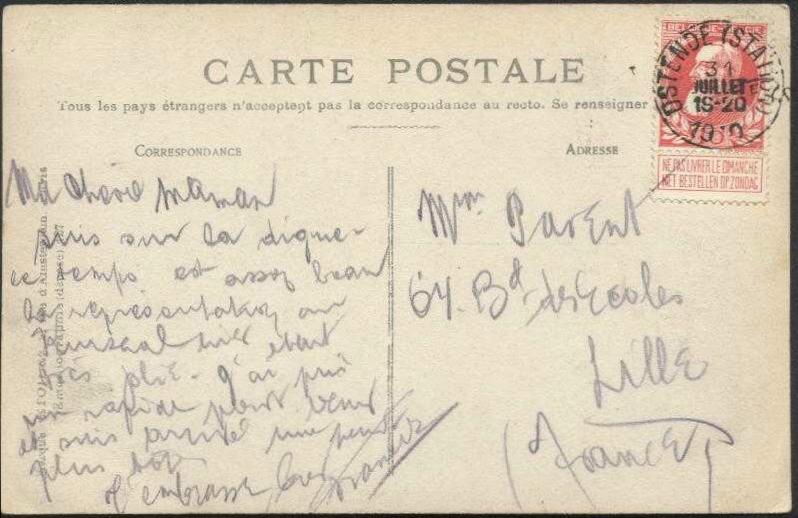 CARTE POSTALE
Tous les pays étrangers n'acceptent pas la correspondance au recto. Se renseigner
CORRESPONDANCE
ADRESSE
BELGIQUE-BELGIE
OSTENDE (STATION)
31
JUILLET
19-20
1910
NE PAS LIVRER LE DIMANCHE
NIET BESTELLEN OP ZONDAG
Ma chère maman
suis sur la digue
ce temps est assez beau
la représentation au
hier était
très
J'ai pris
un rapide pour venir
et suis arrivé une heure
plus tôt
t'embrasse
Mme Parent
64. Bd des Ecoles
Lille
(France)